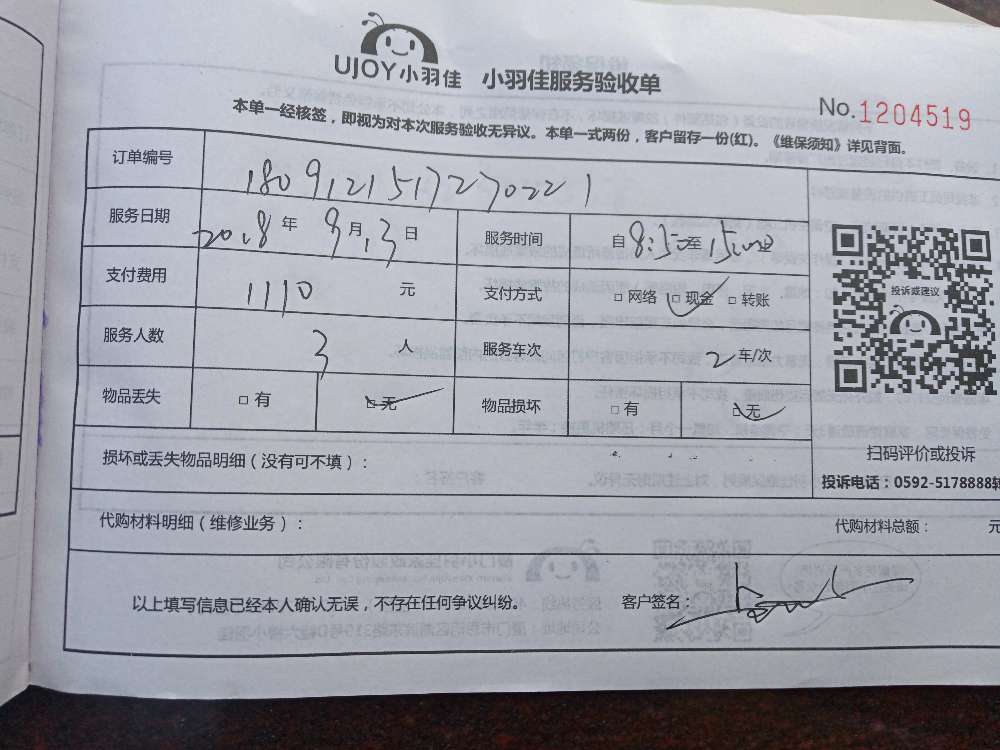 UJOY小羽佳 小羽佳服务验收单
No.1204519
本单一经核签，即视为对本次服务验收无异议。本单一式两份，客户留存一份(红)。《维保须知》详见背面。
订单编号 180912151727022 1
服务日期 2018年9月13日 服务时间 自8:30至15:00
支付费用 1110 元 支付方式 □网络 □现金 □转账
服务人数 3 人 服务车次 2 车/次
物品丢失 □有 □无 物品损坏 □有 □无
投诉或建议
扫码评价或投诉
损坏或丢失物品明细（没有可不填）：
投诉电话：0592-5178888转
代购材料明细（维修业务）： 代购材料总额： 元
以上填写信息已经本人确认无误，不存在任何争议纠纷。 客户签名：